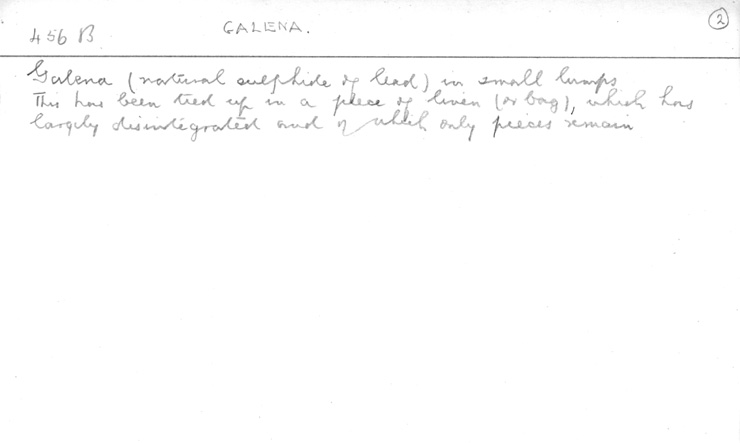 456 B
GALENA.
2
Galena (natural sulphide of lead) in small lumps
This has been tied up in a piece of linen (or bag), which has
largely disintegrated and of which only pieces remain